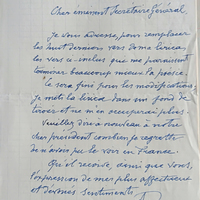 Cher éminent Secrétaire Général,
Je vous adresse, pour remplacer
les huit derniers vers de ma
les vers ci-inclus que me paraissent
terminer beaucoup mieux la poésie.
Ce sera fini pour les modifications
Je mets la dans un fond de
tiroir et ne m'en occuperai plus.
Veuillez dire à nouveau à notre
cher président combien je regrette
de n'avoir pu le voir en France.
Qu'il reçoive, ainsi que vous,
l'expression de mes plus affectueux
et dévoués sentiments.